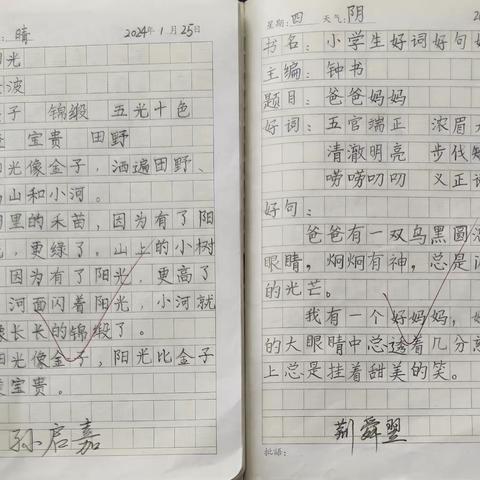 晴 2024年1月25日
阳光
波
子 锦缎 五光十色
宝贵 田野
光像金子，洒遍田野、
山和小河。
里的禾苗，因为有了阳
，更绿了。山上的小树
因为有了阳光，更高了
河面闪着阳光，小河就
像长长的锦缎了。
阳光像金子，阳光比金子
宝贵。
孙启嘉
星期：四 天气：阴
书名：小学生好词好句好
主编：钟书
题目：爸爸妈妈
好词：五官端正 浓眉大
清澈明亮 步伐矫
唠唠叨叨 义正词
好句：
爸爸有一双乌黑圆
眼睛，炯炯有神，总是
的光芒。
我有一个好妈妈，
的大眼睛中总透着几分
上总是挂着甜美的笑。
荆舜翌
批语：